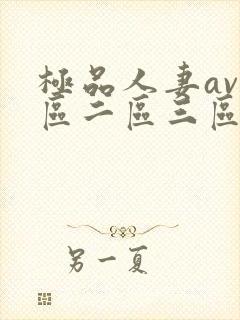 極品人妻av
區二區三區
另一夏